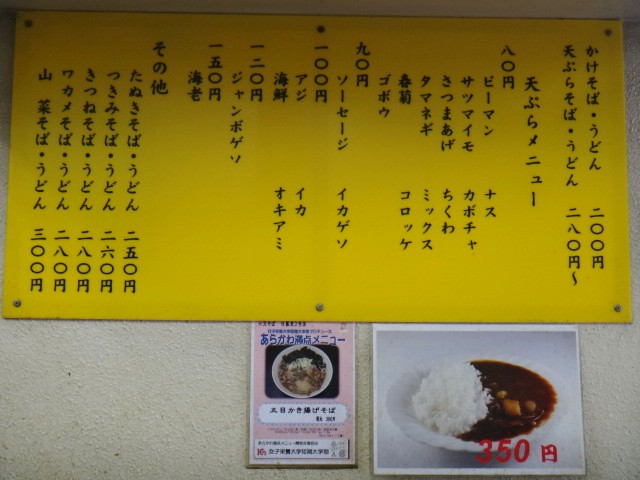 かけそば・うどん 二〇〇円
天ぷらそば・うどん 二八〇円〜
天ぷらメニュー
八〇円
ピーマン ナス
サツマイモ カボチャ
さつまあげ ちくわ
タマネギ ミックス
春菊 コロッケ
ゴボウ
九〇円
ソーセージ イカゲソ
一〇〇円
アジ イカ
海鮮 オキアミ
一二〇円
ジャンボゲソ
一五〇円
海老
その他
たぬきそば・うどん 二五〇円
つきみそば・うどん 二六〇円
きつねそば・うどん 二八〇円
ワカメそば・うどん 二八〇円
山菜そば・うどん 三〇〇円
あらかわ満点メニュー
五目かき揚げそば
女子栄養大学短期大学部
350円